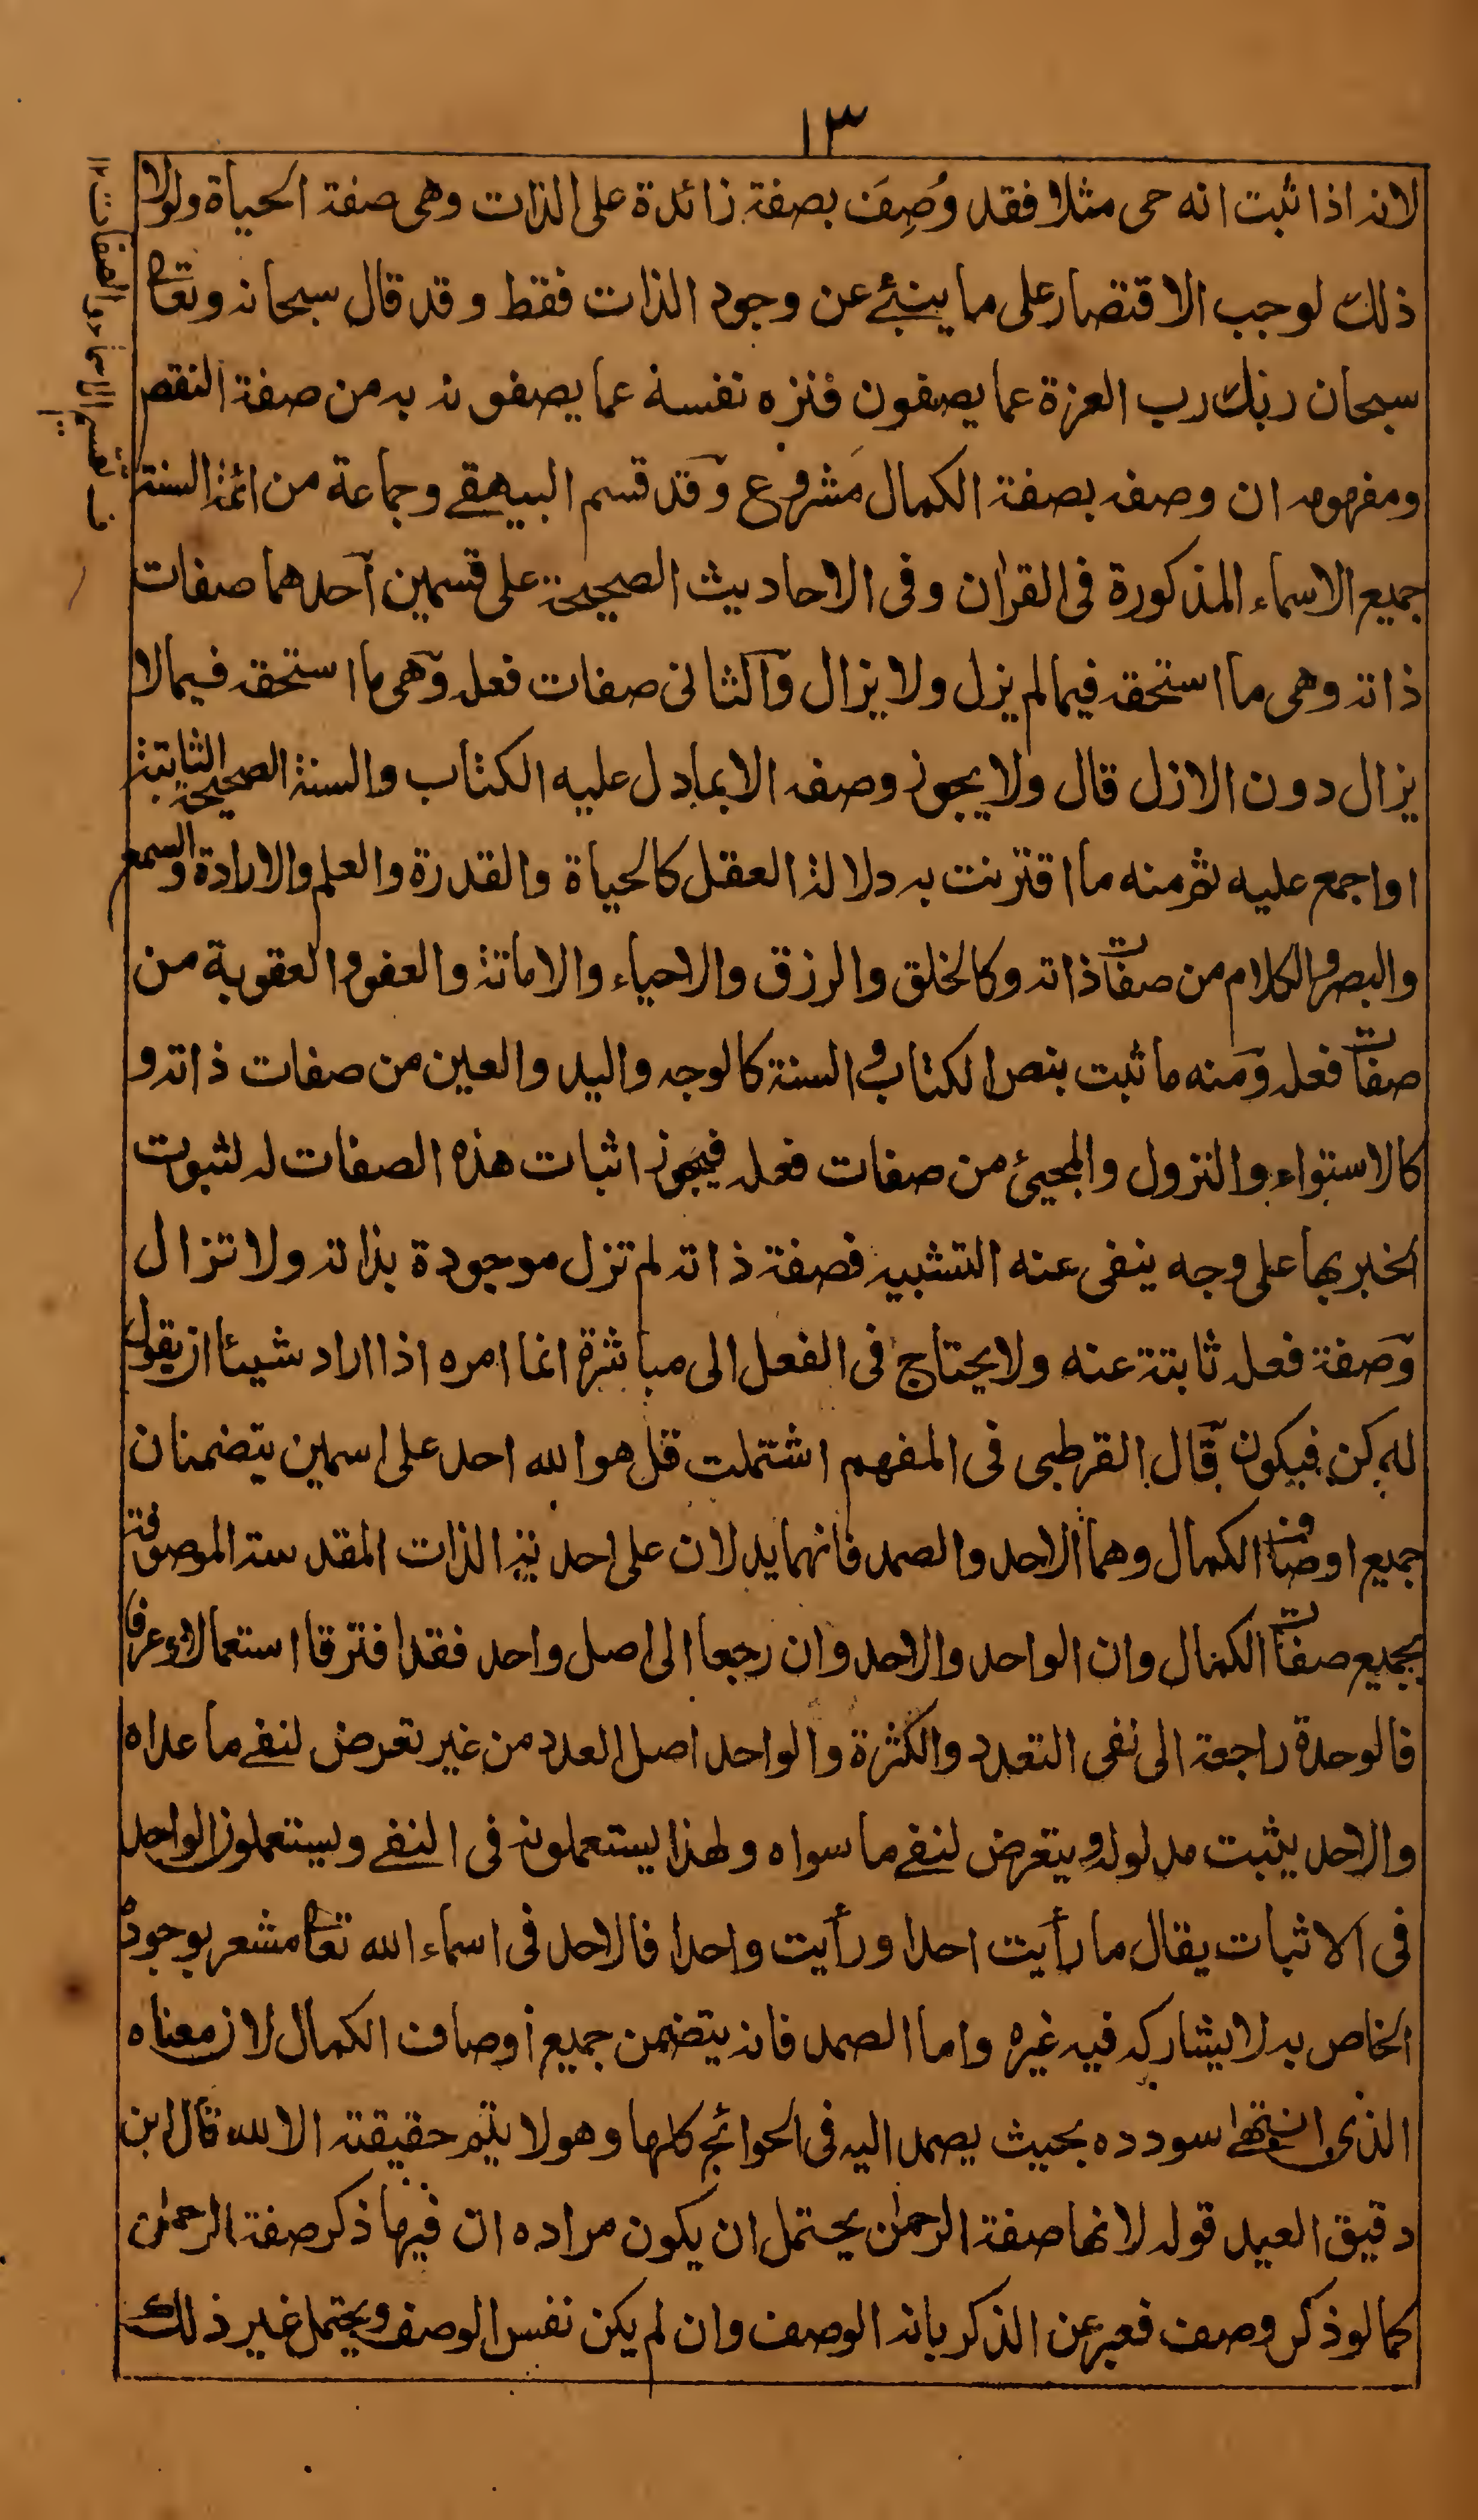 ١٣
لانه اذا ثبت انه حى مثلا فقد وُصِفَ بصفة زائدة على الذات وهى صفة الحياة ولولا
ذلك لوجب الاقتصار على ما ينبئ عن وجود الذات فقط وقد قال سبحانه وتعا
سبحان ربك رب العزة عما يصفون فنزه نفسه عما يصفونه به من صفة النقص
ومفهومه ان وصفه بصفة الكمال مشروع وقد قسم البيهقے وجماعة من ائمة السنة
جميع الاسماء المذكورة فى القران وفى الاحاديث الصحيحة على قسمين احدهما صفات
ذاته وهى ما استحقه فيما لم يزل ولا يزال والثانى صفات فعله وهى ما استحقه فيما لا
يزال دون الازل قال ولا يجوز وصفه الا بما دل عليه الكتاب والسنة الصحيحة الثابتة
او اجمع عليه ثم منه ما اقترنت به دلالة العقل كالحياة والقدرة والعلم والارادة والسمع
والبصر والكلام من صفات ذاته وكالخلق والرزق والاحياء والاماتة والعفو والعقوبة من
صفات فعله ومنه ما ثبت بنص الكتاب والسنة كالوجه واليد والعين من صفات ذاته و
كالاستواء والنزول والمجيئ من صفات فعله فيجوز اثبات هذه الصفات له لثبوت
الخبر بها على وجه ينفى عنه التشبيه فصفة ذاته لم تزل موجودة بذاته ولا تزال
وصفة فعله ثابتة عنه ولا يحتاج فى الفعل الى مباشرة انما امره اذا اراد شيئا ان يقول
له كن فيكون قال القرطبى فى المفهم اشتملت قل هو الله احد على اسمين يتضمنان
جميع اوصاف الكمال وهما الاحد والصمد فانهما يدلان على احدية الذات المقدسة الموصوفة
بجميع صفات الكمال وان الواحد والاحد وان رجعا الى اصل واحد فقد افترقا استعمالا وعرفا
فالوحدة راجعة الى نفى التعدد والكثرة والواحد اصل العدد من غير تعرض لنفے ما عداه
والاحد يثبت مدلوله ويتعرض لنفے ما سواه ولهذا يستعملونه فى النفے ويستعملون الواحد
فى الاثبات يقال ما رأيت احدا ورأيت واحدا فالاحد فى اسماء الله تعا مشعر بوجوده
الخاص به لا يشاركه فيه غيره واما الصمد فانه يتضمن جميع اوصاف الكمال لان معناه
الذى انتهے سودده بحيث يصمد اليه فى الحوائج كلها وهو لا يتم حقيقة الا لله قال ابن
دقيق العيد قوله لانها صفة الرحمٰن يحتمل ان يكون مراده ان فيها ذكر صفة الرحمٰن
كما لو ذكر وصف فعبر عن الذكر بانه الوصف وان لم يكن نفس الوصف ويحتمل غير ذلك